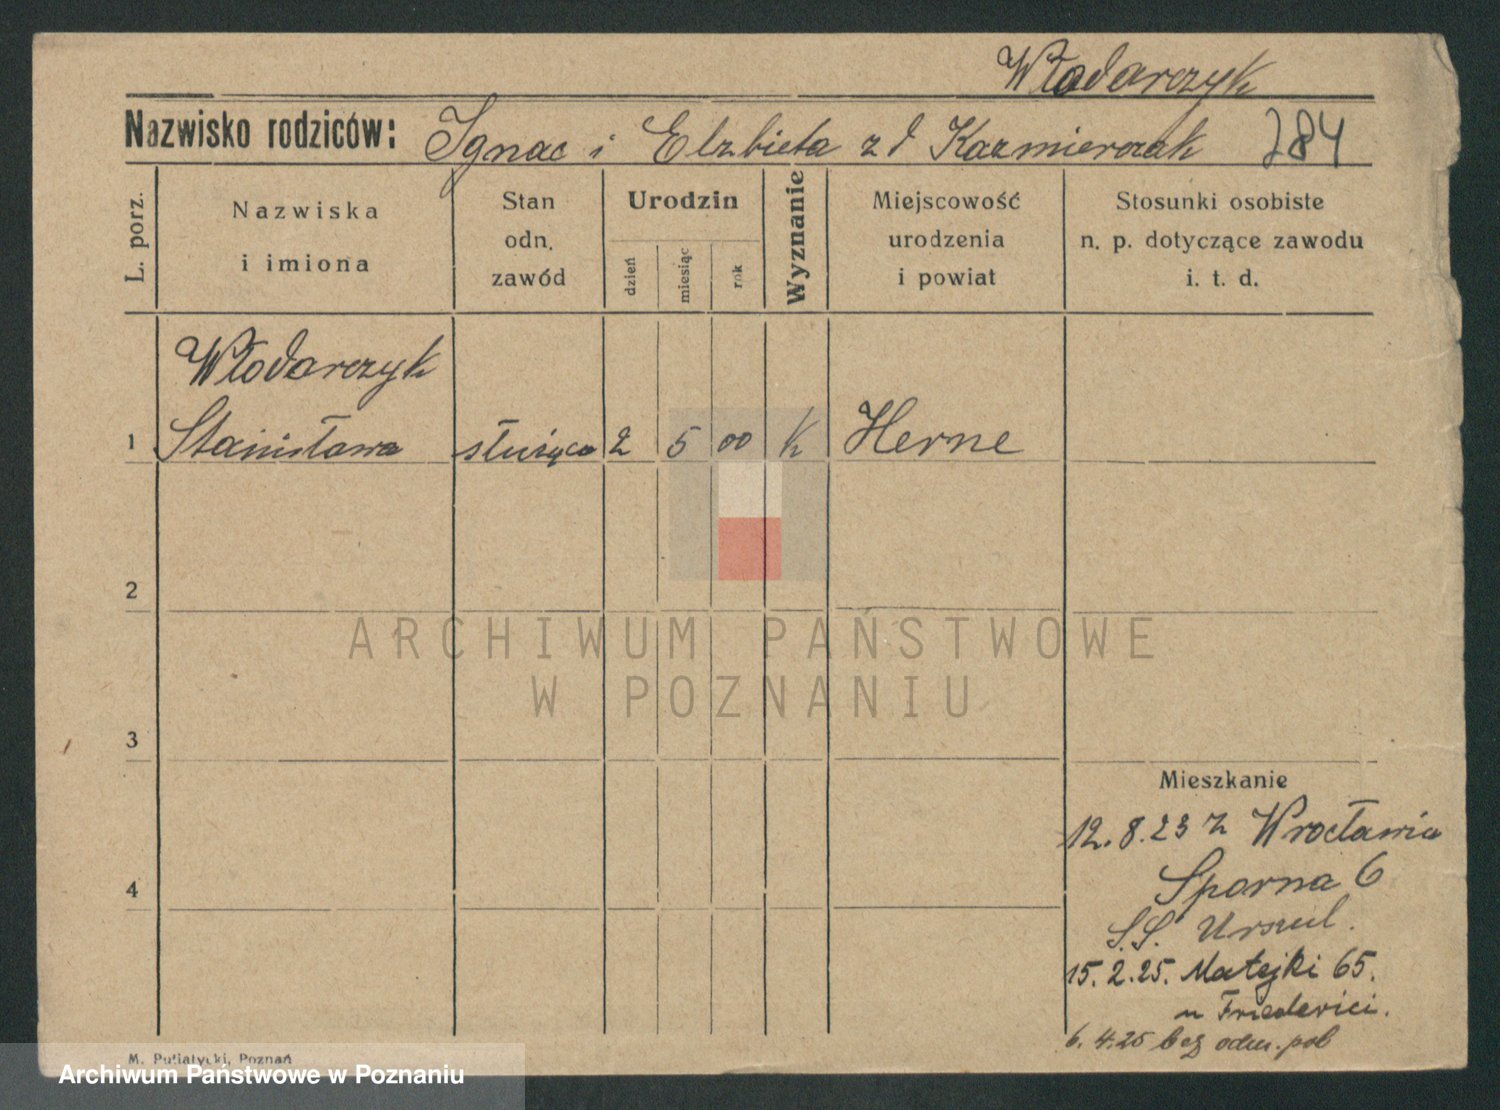 Włodarczyk
Nazwisko rodziców: Ignac i Elzbieta z d Kazmierczak 284
L. porz.
Nazwiska
i imiona
Stan
odn.
zawód
Urodzin
dzień
miesiąc
rok
Wyznanie
Miejscowość
urodzenia
i powiat
Stosunki osobiste
n. p. dotyczące zawodu
i. t. d.
Włodarczyk
1 Stanisława służąca 2 5 00 K Herne
2
ARCHIWUM PAŃSTWOWE
W POZNANIU
3
Mieszkanie
12. 8. 23 z Wrocławia
4
Sporna 6
S.S. Urszul.
15. 2. 25. Matejki 65.
u Friederici.
6. 4. 25 bez odm. pob
M. Putiatycki, Poznań
Archiwum Państwowe w Poznaniu